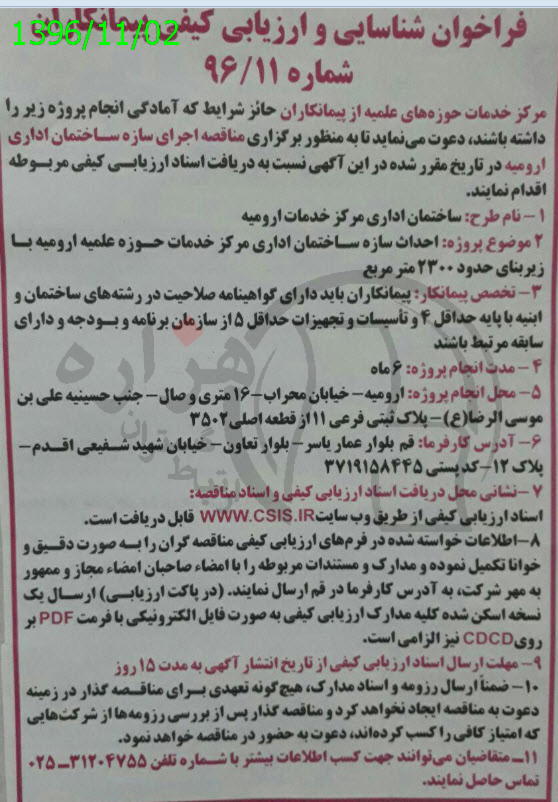 فراخوان شناسایی و ارزیابی کیفی پیمانکاران
1396/11/02
شماره ۹۶/۱۱
مرکز خدمات حوزه‌های علمیه از پیمانکاران حائز شرایط که آمادگی انجام پروژه زیر را
داشته باشند، دعوت می‌نماید تا به منظور برگزاری مناقصه اجرای سازه ساختمان اداری
ارومیه در تاریخ مقرر شده در این آگهی نسبت به دریافت اسناد ارزیابی کیفی مربوطه
اقدام نمایند.
۱- نام طرح: ساختمان اداری مرکز خدمات ارومیه
۲ موضوع پروژه: احداث سازه ساختمان اداری مرکز خدمات حوزه علمیه ارومیه با
زیربنای حدود ۲۳۰۰ متر مربع
۳- تخصص پیمانکار: پیمانکاران باید دارای گواهینامه صلاحیت در رشته‌های ساختمان و
ابنیه با پایه حداقل ۴ و تأسیسات و تجهیزات حداقل ۵ از سازمان برنامه و بودجه و دارای
سابقه مرتبط باشند
۴- مدت انجام پروژه: ۶ ماه
۵- محل انجام پروژه: ارومیه- خیابان محراب- ۱۶ متری وصال- جنب حسینیه علی بن
موسی الرضا(ع)- پلاک ثبتی فرعی ۱۱ از قطعه اصلی ۳۵۰۲
۶- آدرس کارفرما: قم بلوار عمار یاسر- بلوار تعاون- خیابان شهید شفیعی اقدم-
پلاک ۱۲- کد پستی ۳۷۱۹۱۵۸۴۴۵
۷- نشانی محل دریافت اسناد ارزیابی کیفی و اسناد مناقصه:
اسناد ارزیابی کیفی از طریق وب سایت WWW.CSIS.IR قابل دریافت است.
۸- اطلاعات خواسته شده در فرم‌های ارزیابی کیفی مناقصه گران را به صورت دقیق و
خوانا تکمیل نموده و مدارک و مستندات مربوطه را با امضاء صاحبان امضاء مجاز و ممهور
به مهر شرکت، به آدرس کارفرما در قم ارسال نمایند. (در پاکت ارزیابی) ارسال یک
نسخه اسکن شده کلیه مدارک ارزیابی کیفی به صورت فایل الکترونیکی با فرمت PDF بر
روی CDCD نیز الزامی است.
۹- مهلت ارسال اسناد ارزیابی کیفی از تاریخ انتشار آگهی به مدت ۱۵ روز
۱۰- ضمناً ارسال رزومه و اسناد مدارک، هیچ گونه تعهدی برای مناقصه گذار در زمینه
دعوت به مناقصه ایجاد نخواهد کرد و مناقصه گذار پس از بررسی رزومه‌ها از شرکت‌هایی
که امتیاز کافی را کسب کرده‌اند، دعوت به حضور در مناقصه خواهد نمود.
۱۱- متقاضیان می‌توانند جهت کسب اطلاعات بیشتر با شماره تلفن ۳۱۲۰۴۷۵۵-۰۲۵
تماس حاصل نمایند.
هزاره